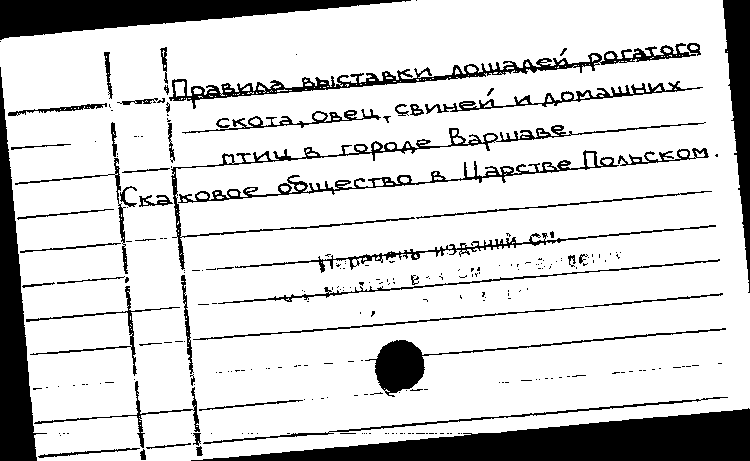 Правила выставки лошадей, рогатого
скота, овец, свиней и домашних
птиц в городе Варшаве.
Скаковое общество в Царстве Польском.
Перечень изданий см.